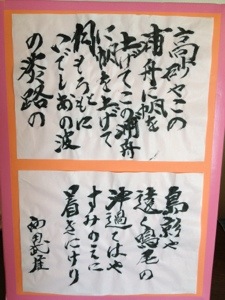 高砂やこの
浦舟に帆を
上げてこの浦舟
に帆を上げて
月もろともに
いでしおの波
の淡路の
島影や
遠く鳴尾の
沖過てはや
すみのえに
着きにけり